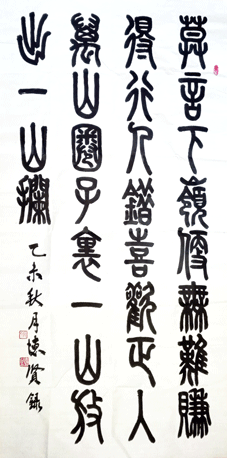 莫言下嶺便無難賺
得行人錯喜歡正入
萬山圈子裏一山放
出一山攔
乙未秋月賢錄